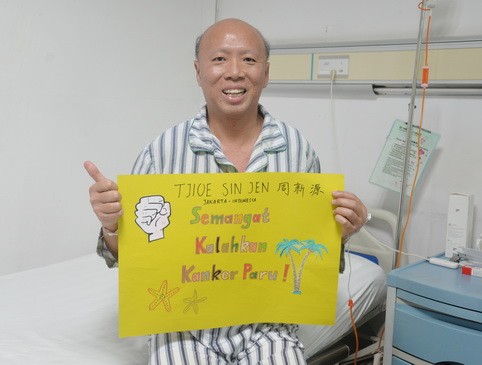 TJIOE SIN JEN 周新源
JAKARTA - INDONESIA
Semangat
Kalahkan
Kanker Paru !